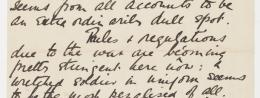 seems from all accounts to be
an extraordinarily dull spot.
Rules & regulations
due to the war are becoming
pretty stringent here now: a
wretched soldier in uniform seems
to be the most penalised of all.